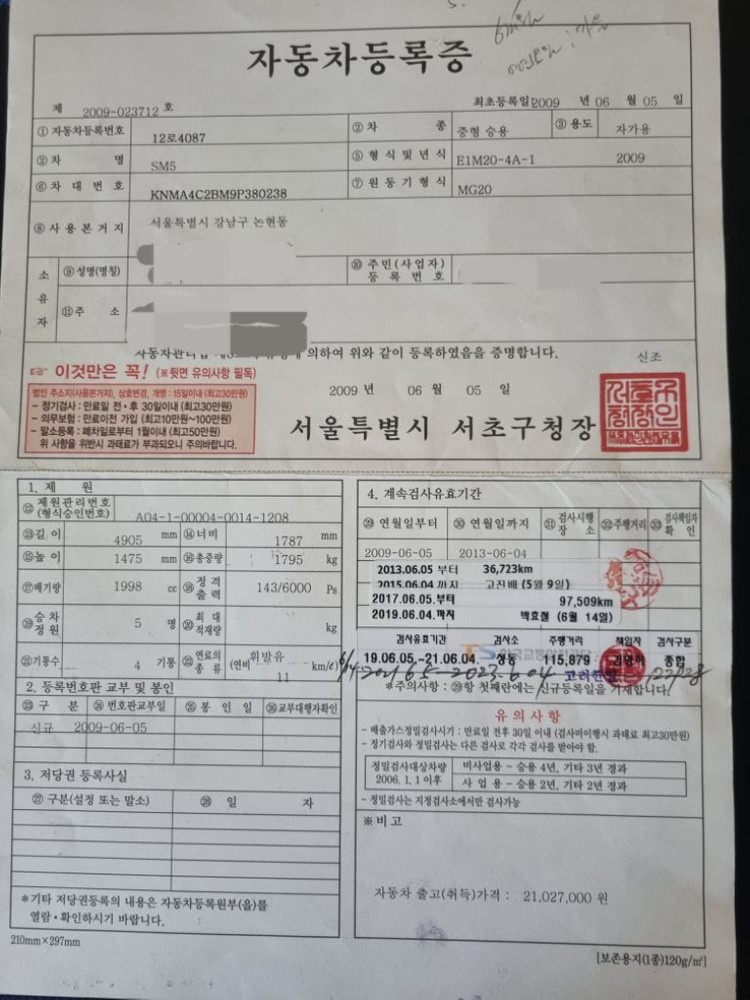 자동차등록증
제 2009-023712 호
최초등록일 2009 년 06 월 05 일
① 자동차등록번호 12로4087 ② 차 종 중형 승용 ③ 용도 자가용
④ 차 명 SM5 ⑤ 형식 및 년식 E1M20-4A-1 2009
⑥ 차 대 번 호 KNMA4C2BM9P380238 ⑦ 원 동 기 형 식 MG20
⑧ 사 용 본 거 지 서울특별시 강남구 논현동
소유자 ⑨ 성명(명칭) ⑩ 주민(사업자)등록번호
⑪ 주 소
의하여 위와 같이 등록하였음을 증명합니다.
신조
☞ 이것만은 꼭! (※뒷면 유의사항 필독)
법인 주소지(사용본거지), 상호변경, 개명 : 15일이내 (최고30만원)
- 정기검사 : 만료일 전·후 30일이내 (최고30만원)
- 의무보험 : 만료이전 가입 (최고10만원~100만원)
- 말소등록 : 폐차일로부터 1월이내 (최고50만원)
위 사항을 위반시 과태료가 부과되오니 주의바랍니다.
2009 년 06 월 05 일
서울특별시 서초구청장
1. 제 원
⑫ 제원관리번호 (형식승인번호) A04-1-00004-0014-1208
⑬ 길 이 4905 mm ⑭ 너 비 1787 mm
⑮ 높 이 1475 mm ⑯ 총중량 1795 kg
⑰ 배기량 1998 cc ⑱ 정격출력 143/6000 Ps
⑲ 승차정원 5 명 ⑳ 최대적재량 kg
㉑ 기통수 4 기통 ㉒ 연료의 종류 휘발유 (연비 11 km/ℓ)
2. 등록번호판 교부 및 봉인
㉓ 구 분 ㉔ 번호판교부일 ㉕ 봉 인 일 ㉖ 교부대행자확인
신규 2009-06-05
3. 저당권 등록사실
㉗ 구분(설정 또는 말소) ㉘ 일 자
*기타 저당권등록의 내용은 자동차등록원부(을)를
열람·확인하시기 바랍니다.
210mm×297mm
4. 계속검사유효기간
㉙ 연월일부터 ㉚ 연월일까지 ㉛ 검사시행장소 ㉜ 주행거리 ㉝ 검사책임자확인
2009-06-05 2013-06-04
2013.06.05 부터 36,723km
2015.06.04 까지 고진배 (5월 9일)
2017.06.05.부터 97,509km
2019.06.04.까지 박효철 (6월 14일)
검사유효기간 검사소 주행거리 책임자 검사구분
19.06.05~21.06.04. 성동 115,879 종합
2021.6.5-2023.6.04
*주의사항 : ㉙항 첫째란에는 신규등록일을 기재합니다.
유 의 사 항
- 배출가스정밀검사시기 : 만료일 전후 30일 이내 (검사미이행시 과태료 최고30만원)
- 정기검사와 정밀검사는 다른 검사로 각각 검사를 받아야 함.
정밀검사대상차량 2006. 1. 1 이후
비사업용 - 승용 4년, 기타 3년 경과
사 업 용 - 승용 2년, 기타 2년 경과
- 정밀검사는 지정검사소에서만 검사가능
※ 비 고
자동차 출고(취득)가격 : 21,027,000 원
[보존용지(1종)120g/㎡]